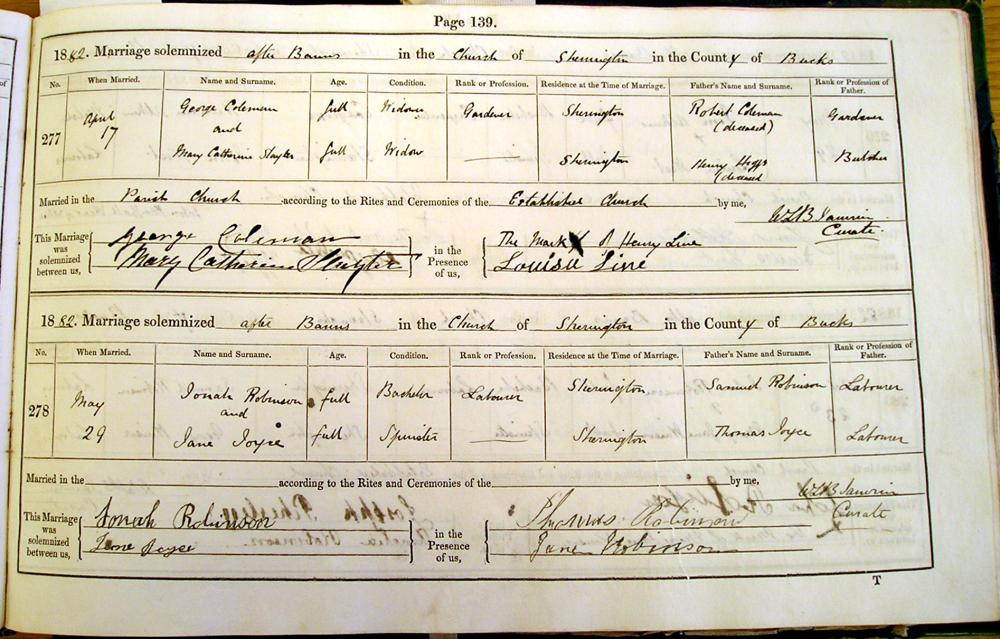 Page 139.
1882. Marriage solemnized after Banns in the Church of Sherington in the County of Bucks
No. When Married. Name and Surname. Age. Condition. Rank or Profession. Residence at the Time of Marriage. Father's Name and Surname. Rank or Profession of Father.
277 April 17 George Coleman full Widower Gardener Sherington Robert Coleman (deceased) Gardener
and
Mary Catherine Slayter full Widow — Sherington Henry (deceased Butcher
Married in the Parish Church according to the Rites and Ceremonies of the Established Church by me,
Curate.
This Marriage was solemnized between us, George Coleman in the Presence of us, The Mark X of Henry Line
Mary Catherine Slayter Louisa Line
1882. Marriage solemnized after Banns in the Church of Sherington in the County of Bucks
No. When Married. Name and Surname. Age. Condition. Rank or Profession. Residence at the Time of Marriage. Father's Name and Surname. Rank or Profession of Father.
278 May 29 Jonah Robinson full Bachelor Labourer Sherington Samuel Robinson Labourer
and
Jane Joyce full Spinster — Sherington Thomas Joyce Labourer
Married in the according to the Rites and Ceremonies of the by me,
Curate
This Marriage was solemnized between us, Jonah Robinson in the Presence of us, Thomas Robinson
Jane Joyce Jane Robinson
T